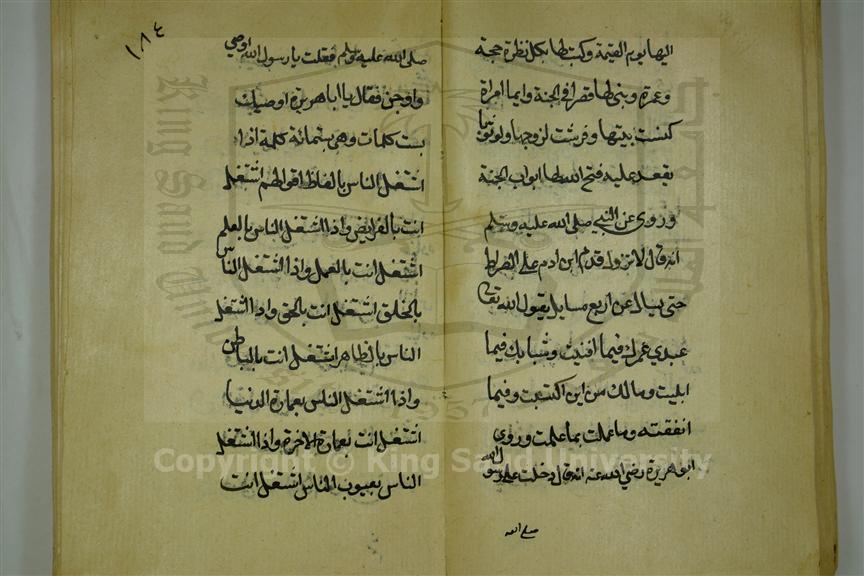 اليها يوم القيمة وكتب لها بكل نظرة حجة
وعمرة وبنى لها قصرا في الجنة وايما امراة
كنست بيتها وفرشت لزوجها ولو ثوبا
يقعد عليه فتح الله لها ابواب الجنة
وروي عن النبي صلى الله عليه وسلم
انه قال لا تزول قدم ابن ادم على الصراط
حتى يسال عن اربع مسايل يقول الله تعالى
عبدي عمرك فيما افنيت وشبابك فيما
ابليت ومالك من اين اكتسبت وفيما
انفقته وما عملت بما علمت وروي
ابو هريرة رضي الله عنه انه قال دخلت على رسول الله
صلى الله
١٨٤
صلى الله عليه وسلم فقلت يا رسول الله اوصي
واوجز فقال يا ابا هريرة اوصيك
بست كلمات وهي بستمائة كلمة اذا
اشتغل الناس بالفاظ اقوالهم اشتغل
انت بالفرايض واذا اشتغل الناس بالعلم
اشتغل انت بالعمل واذا اشتغل الناس
بالخلق اشتغل انت بالحق واذا اشتغل
الناس بالظاهر اشتغل انت بالباطن
واذا اشتغل الناس بعمارة الدنيا
اشتغل انت بعمارة الاخرة واذا اشتغل
الناس بعيوب الناس اشتغل انت
King Saud University
1957
Copyright © King Saud University